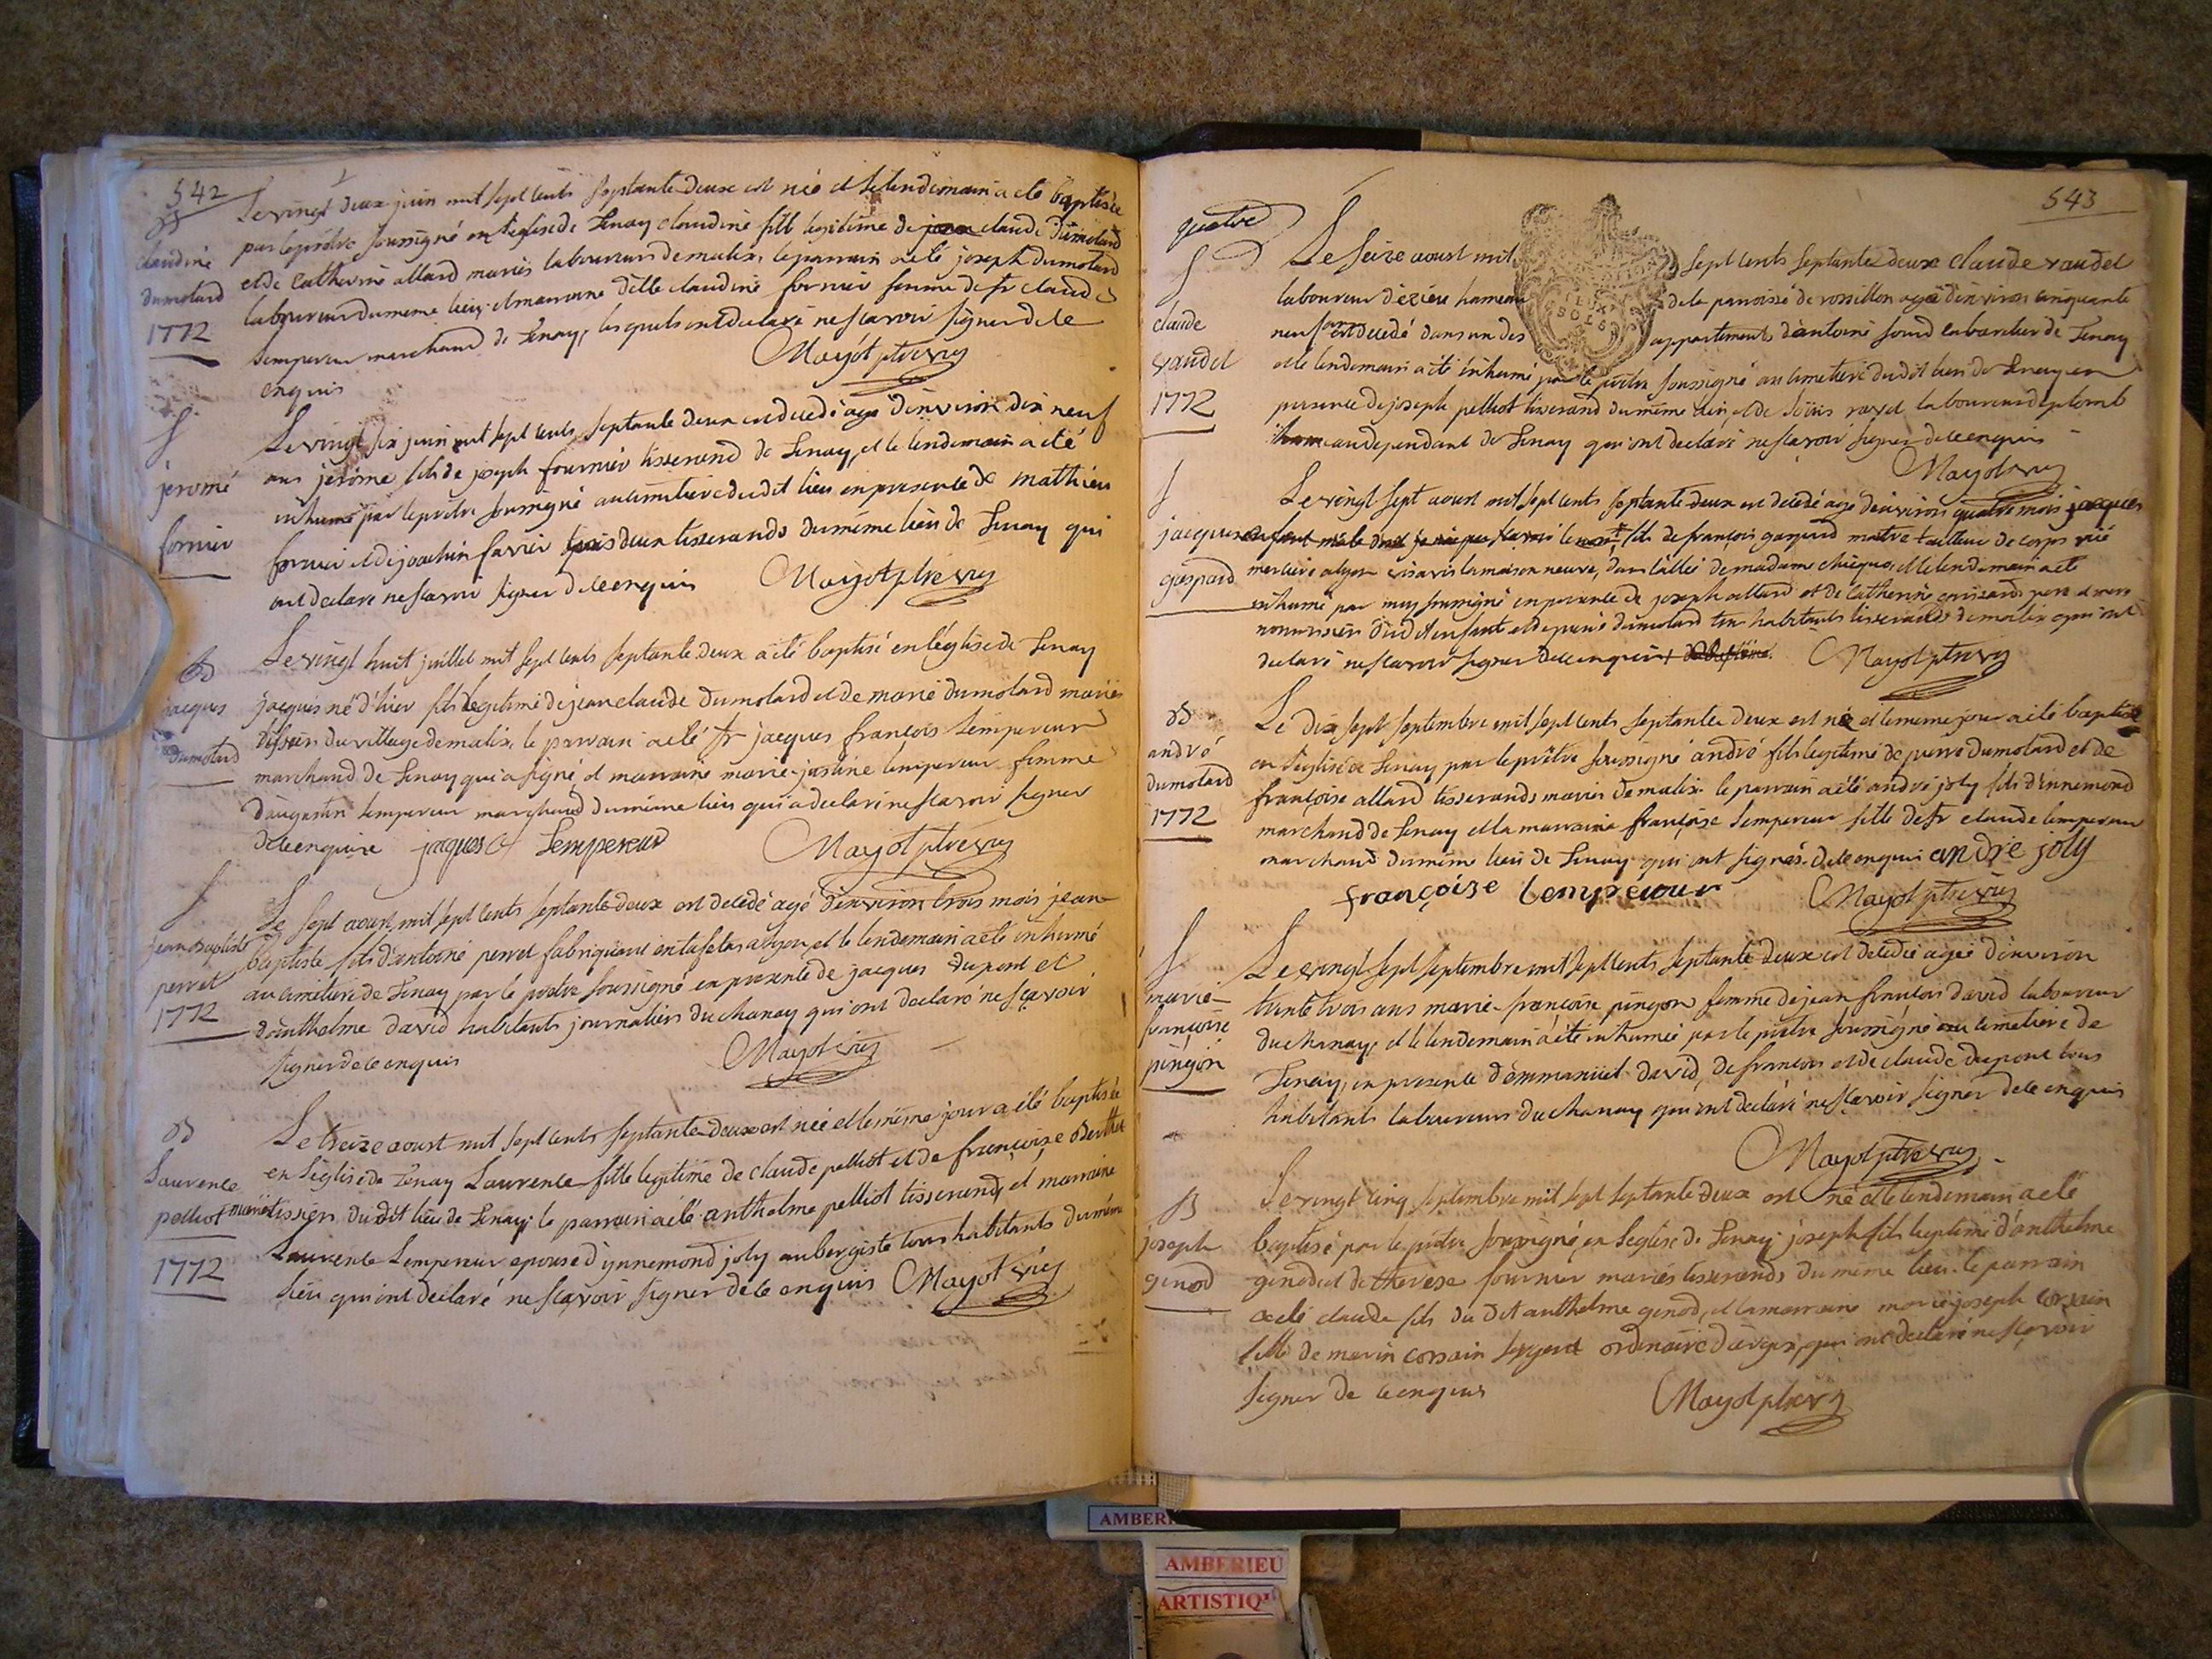 542
B
claudine
dumolard
1772
Le vingt deux juin mil sept cents septante deux est née et le lendemain a eté baptisée
par le prêtre soussigné en l'eglise de Tenay claudine fille legitime de claude dumolard
et de Catherine allard mariés laboureurs de malix, le parrain a eté joseph dumolard
laboureur du meme lieu, et marraine dlle claudine fornier femme de sr claude
Lempereur marchand de Tenay, lesquels ont declaré ne scavoir signer de ce
enquis Mayot ptre vic
S
jeromé
fornier
Le vingt six juin mil sept cents septante deux est decedé agé d'environ dix neuf
ans jérome fils de joseph fournier tisserand de Tenay, et le lendemain a eté
inhumé par le prêtre soussigné au cimetiere du dit lieu en presence de mathieu
fornier et de joachin favier deux tisserands du même lieu de Tenay qui
ont declaré ne scavoir signer de ce enquis Mayot ptre vic
B
jacques
dumolard
Le vingt huit juillet mil sept cents septante deux a eté baptisé en l'église de Tenay
jacques né d'hier fils legitime de jean claude dumolard et de marie dumolard mariés
du village de malix, le parrain a eté sr jacques françois Lempereur
marchand de Tenay qui a signé et marraine marie justine lempereur femme
d'augustin Lempereur marchand du même lieu qui a declaré ne scavoir signer
de ce enquise jacques Lempereur Mayot ptre vic
S
jean Baptiste
perret
1772
Le sept aoust mil sept cents septante deux est decedé agé d'environ trois mois jean
baptiste fils d'antoine perret fabriquant en tafetas a lyon, et le lendemain a eté inhumé
au cimetiere de Tenay par le prêtre soussigné en presence de jacques dupont et
d'anthelme david habitants journaliers du chanay qui ont declaré ne scavoir
signer de ce enquis Mayot vic
B
Laurence
pelliot
1772
Le treize aoust mil sept cents septante deux est née et le même jour a eté baptisée
en l'église de Tenay Laurence fille legitime de claude pelliot et de françoise Berthet
mariés tisser. du dit lieu de Tenay; le parrain a eté anthelme pelliot tisserand, et marraine
Laurence Lempereur epouse d'ynnemond joly aubergiste tous habitants du même
lieu qui ont declaré ne scavoir signer de ce enquis Mayot vic
543
quatre
S
claude
vaudet
1772
Le seize aoust mil sept cents septante deux claude vaudet
laboureur d'ezieu hameau de la paroisse de rossillon agé d'environ cinquante
neuf ans est decedé dans un des appartements d'antoine sourd cabaretier de Tenay
et le lendemain a eté inhumé par le prêtre soussigné au cimetiere du dit lieu de Tenay en
presence de joseph pelliot tisserand du même lieu, et de ravet laboureur de plomb
au dependant de Tenay qui ont declaré ne scavoir signer de ce enquis
Mayot vic
S
jacques
gaspard
Le vingt sept aoust mil sept cents septante deux est decedé agé d'environ quatre mois jacques
fils de françois gaspard maitre tailleur de corps rüe
merciere a lyon vis a vis la maison neuve, dans l'allée de madame et le lendemain a eté
inhumé par moy soussigné en presence de joseph allard et de Catherine pere et mere
nourrissier du dit enfant et de pierre dumolard tous habitants tisserands de malix qui ont
declaré ne scavoir signer de ce enquis Mayot ptre vic
B
andré
dumolard
1772
Le dix sept septembre mil sept cents septante deux est né et le meme jour a eté baptisé
en l'eglise de Tenay par le prêtre soussigné andré fils legitime de pierre dumolard et de
françoise allard tisserands mariés de malix. le parrain a eté andré joly fils d'innemond
marchand de Tenay et la marraine françoise Lempereur fille de sr claude lempereur
marchand du même lieu de Tenay qui ont signés. de ce enquis andre joly
françoise lempereur Mayot ptre vic
S
marie
françoise
pingon
Le vingt sept septembre mil sept cents septante deux est decedée agée d'environ
trente trois ans marie françoise pingon femme de jean françois david laboureur
du chanay, et le lendemain a eté inhumée par le prêtre soussigné au cimetiere de
Tenay, en presence d'emmanuel david, de françois et de claude dupont tous
habitants laboureurs du chanay qui ont declaré ne scavoir signer de ce enquis
Mayot ptre vic
B
joseph
genod
Le vingt cinq septembre mil sept septante deux est né et le lendemain a eté
baptisé par le prêtre soussigné, en l'eglise de Tenay joseph fils legitime d'anthelme
genod et de therese fournier mariés tisserands du même lieu. le parrain
a eté claude fils du dit anthelme genod, et la marraine marie joseph corsain
fille de marin corsain sergent ordinaire qui ont declaré ne scavoir
signer de ce enquis Mayot ptre vic
AMBERIEU
ARTISTIQ